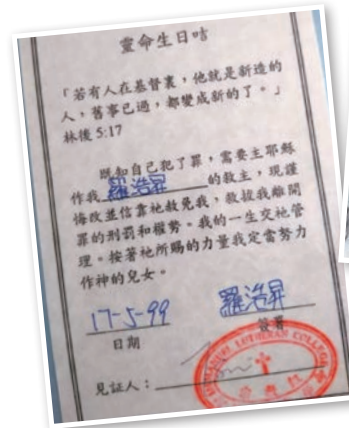 靈命生日咭
「若有人在基督裏，他就是新造的
人，舊事已過，都變成新的了。」
林後 5:17
既知自己犯了罪，需要主耶穌
作我 羅浩昇 的救主，現謹
悔改並信靠祂赦免我，救拔我離開
罪的刑罰和權勢。我的一生交祂管
理。按著祂所賜的力量我定當努力
作神的兒女。
17-5-99 羅浩昇
日期 簽署
見証人：
LUTHERAN COLLEGE